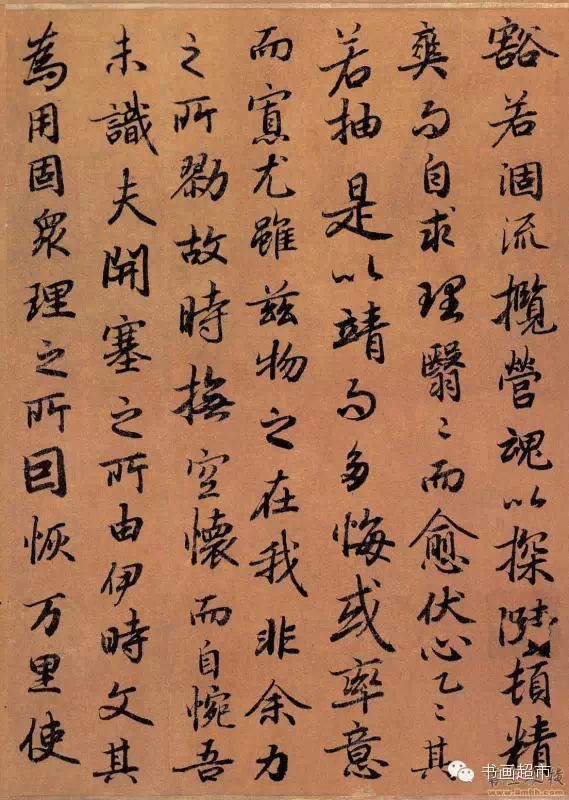 豁若涸流攬營魂以探賾頓精
爽而自求理翳〻而愈伏心乙〻其
若抽是以靖而多悔或率意
而寡尤雖茲物之在我非余力
之所勠故時撫空懷而自惋吾
未識夫開塞之所由伊時文其
為用固眾理之所因恢万里使
书画超市